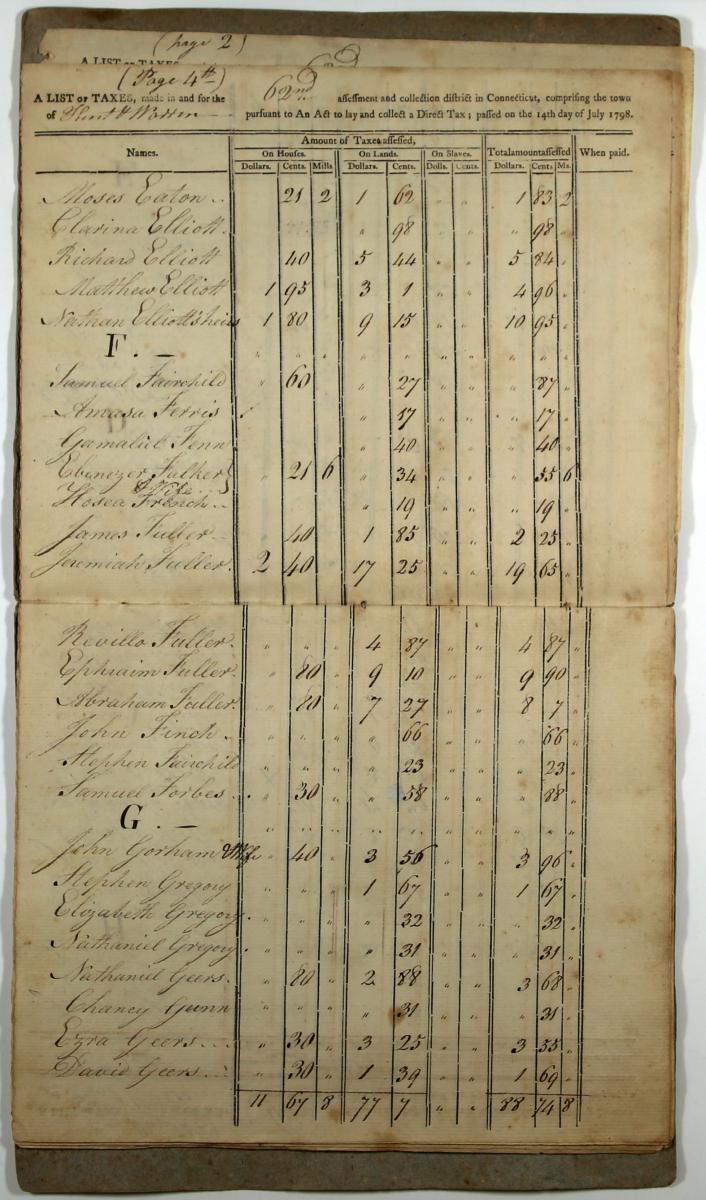 (page 2)
A LIST OF TAXES
62nd
(Page 4th)
A LIST OF TAXES, made in and for the 62nd assessment and collection district in Connecticut, comprising the town
of Kent & Warren pursuant to An Act to lay and collect a Direct Tax; passed on the 14th day of July 1798.
Amount of Taxes assessed,
Names. On Houses. On Lands. On Slaves. Total amount assessed When paid.
Dollars. Cents. Mills Dollars. Cents. Dolls. Cents. Dollars. Cents Ms.
Moses Eaton 21 2 1 62 " " 1 83 2
Clarina Elliott " 98 " " " 98 "
Richard Elliott 40 5 44 " " 5 84 "
Matthew Elliott 1 95 3 1 " " 4 96 "
Nathan Elliott's heirs 1 80 9 15 " " 10 95 "
F. —
Samuel Fairchild " 60 " 27 " " " 87 "
Amasa Ferris " 17 " " " 17 "
Gamaliel Fenn " 40 " " " 40 "
Ebenezer Fulker } " 21 6 " 34 " " " 55 6
& Wife
Hosea French " 19 " " " 19 "
James Fuller 40 1 85 " " 2 25 "
Jeremiah Fuller 2 40 17 25 " " 19 65 "
Revillo Fuller " " " 4 87 " " 4 87 "
Ephraim Fuller " 80 " 9 10 " " 9 90 "
Abraham Fuller " 80 " 7 27 " " 8 7 "
John Finch " " " " 66 " " " 66 "
Stephen Fairchild " " " " 23 " " " 23 "
Samuel Forbes " 30 " 58 " " " 88 "
G. —
John Gorham & Wife " 40 " 3 56 " " 3 96 "
Stephen Gregory " " " 1 67 " " 1 67 "
Elizabeth Gregory " " " " 32 " " " 32 "
Nathaniel Gregory " " " " 31 " " " 31 "
Nathaniel Geers " 80 " 2 88 " " 3 68 "
Chancy Gunn " " " " 31 " " " 31 "
Ezra Geers " 30 " 3 25 " " 3 55 "
David Geers " 30 " 1 39 " " 1 69 "
11 67 8 77 7 " " 88 74 8